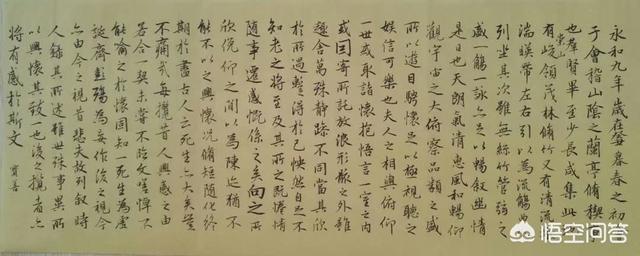 永和九年歲在癸暮春之初
于會稽山陰之蘭亭脩禊
也群賢畢至少長咸集此
有峻領茂林脩竹又有清流
湍暎帶左右引以為流觴曲
列坐其次雖無絲竹管弦之
盛一觴一詠亦足以暢敘幽情
是日也天朗氣清惠風和暢仰
觀宇宙之大俯察品類之盛
所以遊目騁懷足以極視聽之
娛信可樂也夫人之相與俯仰
一世或取諸懷抱悟言一室之內
或因寄所託放浪形骸之外雖
趣舍萬殊靜躁不同當其欣
於所遇暫得於己快然自足不
知老之將至及其所之既惓情
隨事遷感慨係之矣向之所
欣俛仰之間以為陳迹猶不
能不以之興懷況脩短隨化終
期於盡古人云死生亦大矣豈
不痛哉每攬昔人興感之由
若合一契未嘗不臨文嗟悼不
能喻之於懷固知一死生為虛
誕齊彭殤為妄作後之視今
亦由今之視昔悲夫故列敘時
人錄其所述雖世殊事異所
以興懷其致一也後之攬者亦
將有感於斯文
悟空问答